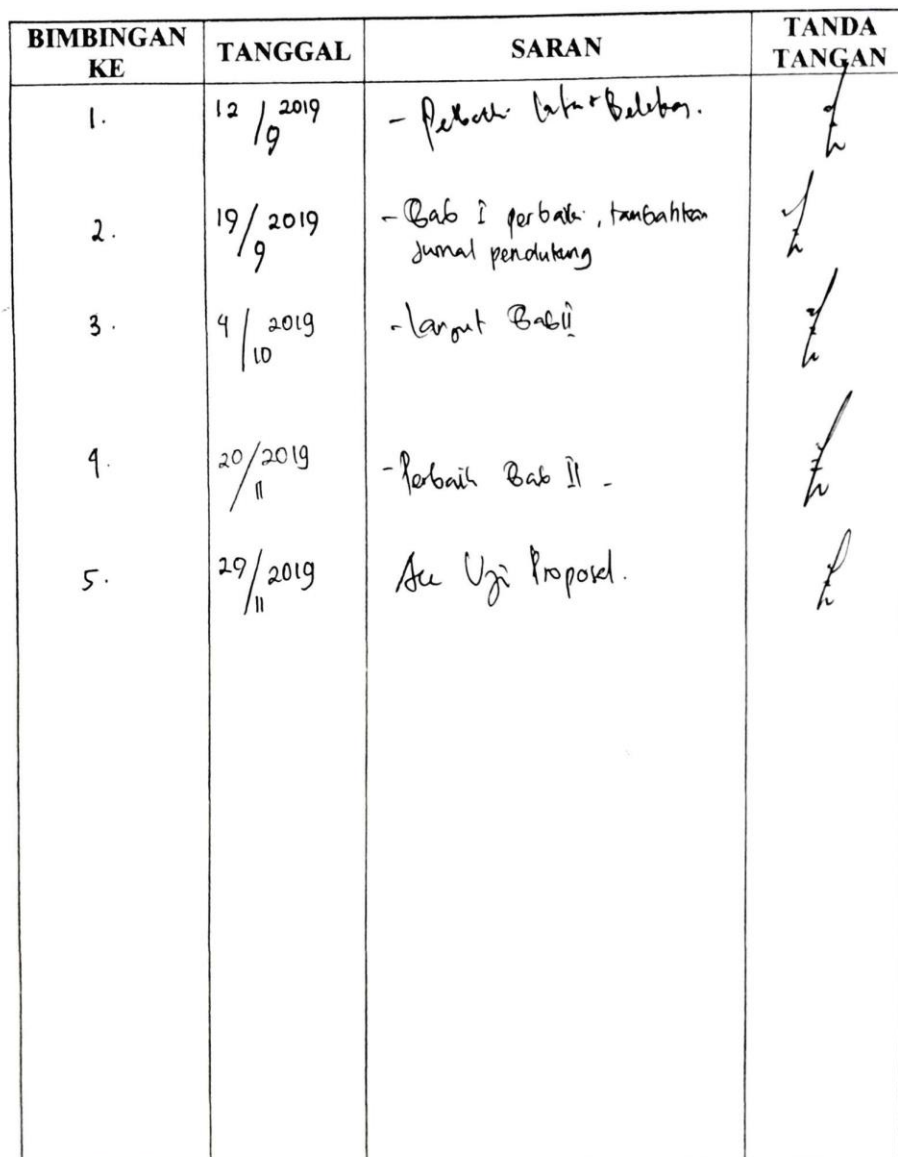 BIMBINGAN KE TANGGAL SARAN TANDA TANGAN
1. 12/9 2019 - Perbaiki Latar Belakang.
2. 19/9 2019 - Bab I perbaiki, tambahkan
Jurnal pendukung
3. 4/10 2019 - Lanjut Bab II
4. 20/11 2019 - Perbaiki Bab II -
5. 29/11 2019 Acc Uji Proposal.